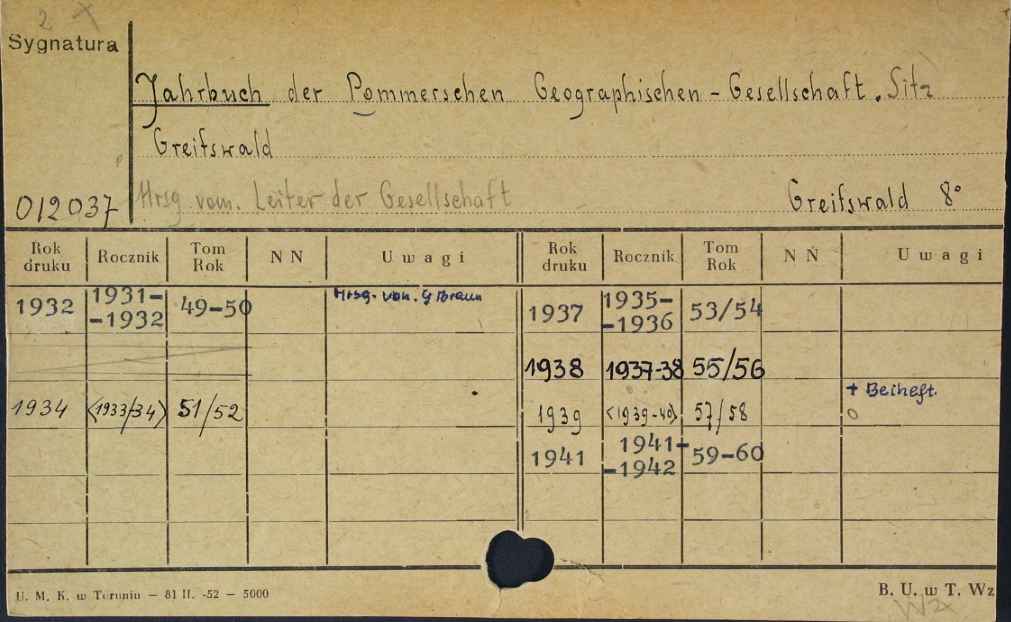 2
Sygnatura
Jahrbuch der Pommerschen Geographischen-Gesellschaft. Sitz
Greifswald
012037 Hrsg vom. Leiter der Gesellschaft Greifswald 8°
Rok druku Rocznik Tom Rok N N U w a g i Rok druku Rocznik Tom Rok N N U w a g i
1932 1931--1932 49-50 Hrsg. von. G Braun 1937 1935--1936 53/54
1938 1937-38 55/56
1934 <1933/34> 51/52 1939 <1939-40> 57/58 + Beiheft.
1941 1941--1942 59-60
U. M. K. w Toruniu — 81 II. -52 — 5000 B. U. w T. Wz
Wz